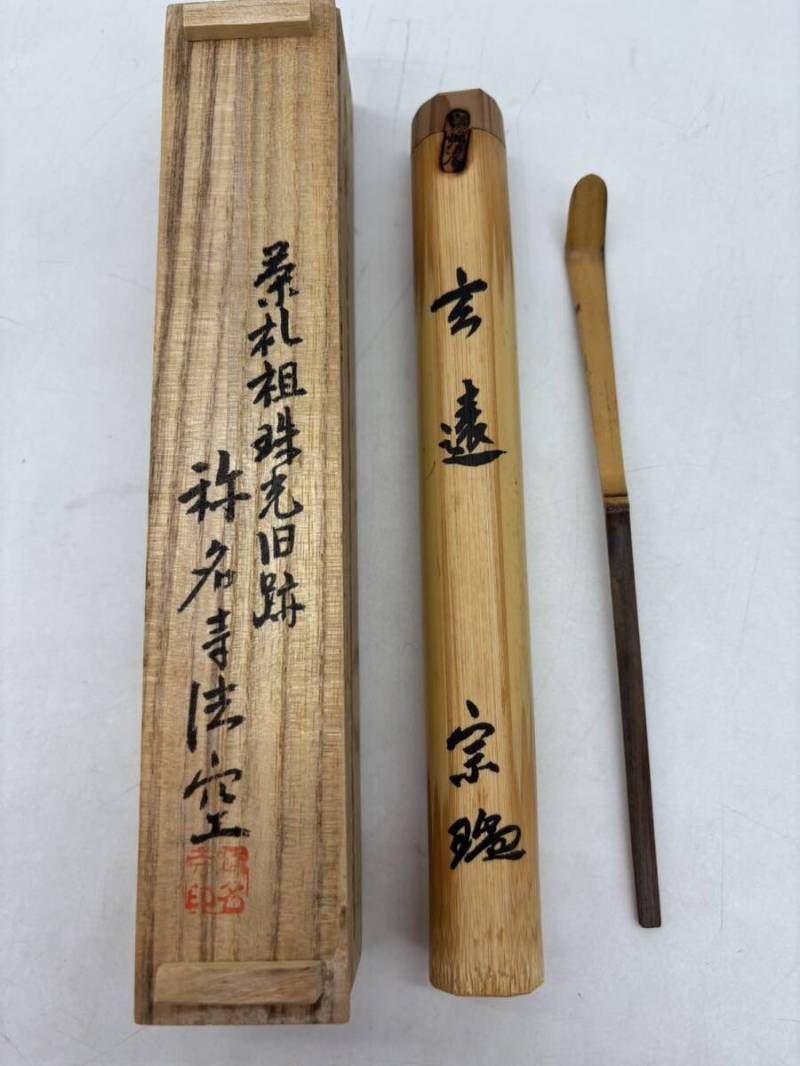 茶礼祖珠光旧跡
称名寺法空
玄遠
宗